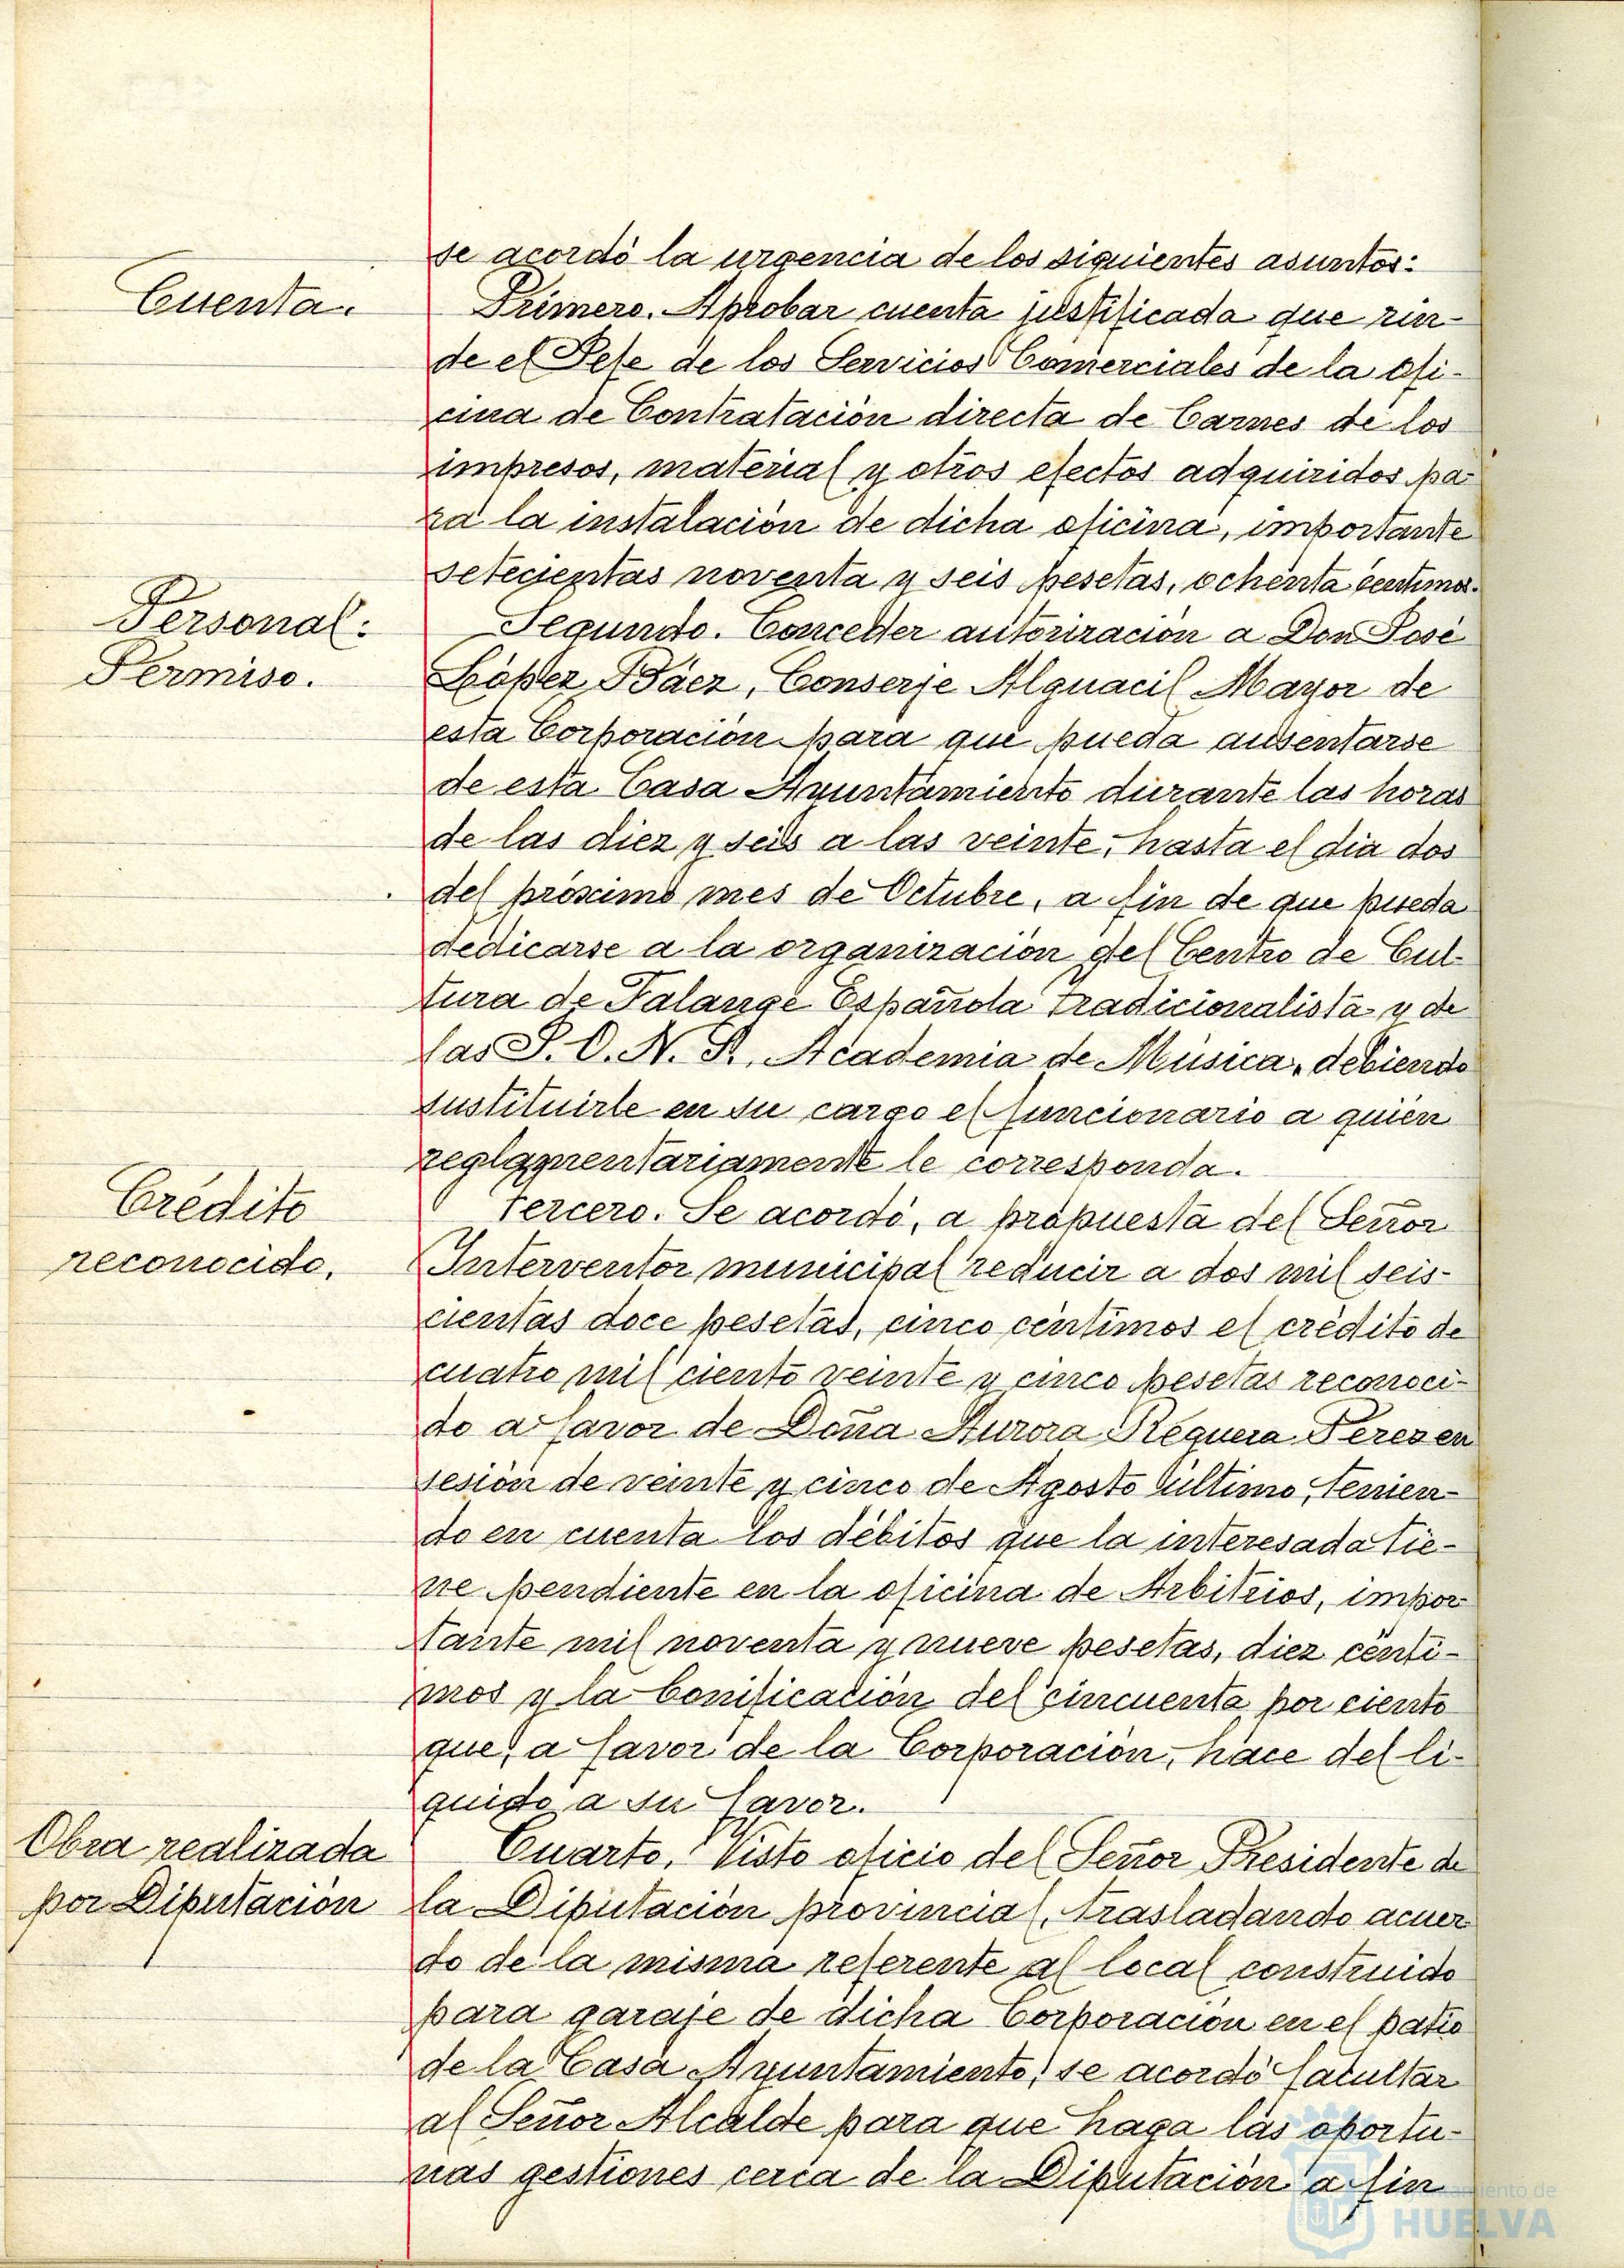 se acordó la urgencia de los siguientes asuntos:
Cuenta.
Primero. Aprobar cuenta justificada que rin-
de el Jefe de los Servicios Comerciales de la ofi-
cina de Contratación directa de Carnes de los
impresos, material y otros efectos adquiridos pa-
ra la instalación de dicha oficina, importante
setecientas noventa y seis pesetas, ochenta centimos.
Personal:
Permiso.
Segundo. Conceder autorización a Don José
López Báez, Conserje Alguacil Mayor de
esta Corporación para que pueda ausentarse
de esta Casa Ayuntamiento durante las horas
de las diez y seis a las veinte, hasta el dia dos
del próximo mes de Octubre, a fin de que pueda
dedicarse a la organización del Centro de Cul-
tura de Falange Española Tradicionalista y de
las J. O. N. S., Academia de Música, debiendo
sustituirle en su cargo el funcionario a quien
reglamentariamente le corresponda.
Crédito
reconocido.
Tercero. Se acordó, a propuesta del Señor
Interventor municipal reducir a dos mil seis-
cientas doce pesetas, cinco céntimos el crédito de
cuatro mil ciento veinte y cinco pesetas reconoci-
do a favor de Doña Aurora Requera Perez en
sesión de veinte y cinco de Agosto último, tenien-
do en cuenta los débitos que la interesada tie-
ne pendiente en la oficina de Arbitrios, impor
tante mil noventa y nueve pesetas, diez cénti-
mos y la bonificación del cincuenta por ciento
que, a favor de la Corporación, hace del lí-
quido a su favor.
Obra realizada
por Diputación
Cuarto. Visto oficio del Señor Presidente de
la Diputación provincial, trasladando acuer
do de la misma referente al local construido
para garaje de dicha Corporación en el patio
de la Casa Ayuntamiento, se acordó facultar
al Señor Alcalde para que haga las oportu-
nas gestiones cerca de la Diputación a fin
Ayuntamiento de
HUELVA